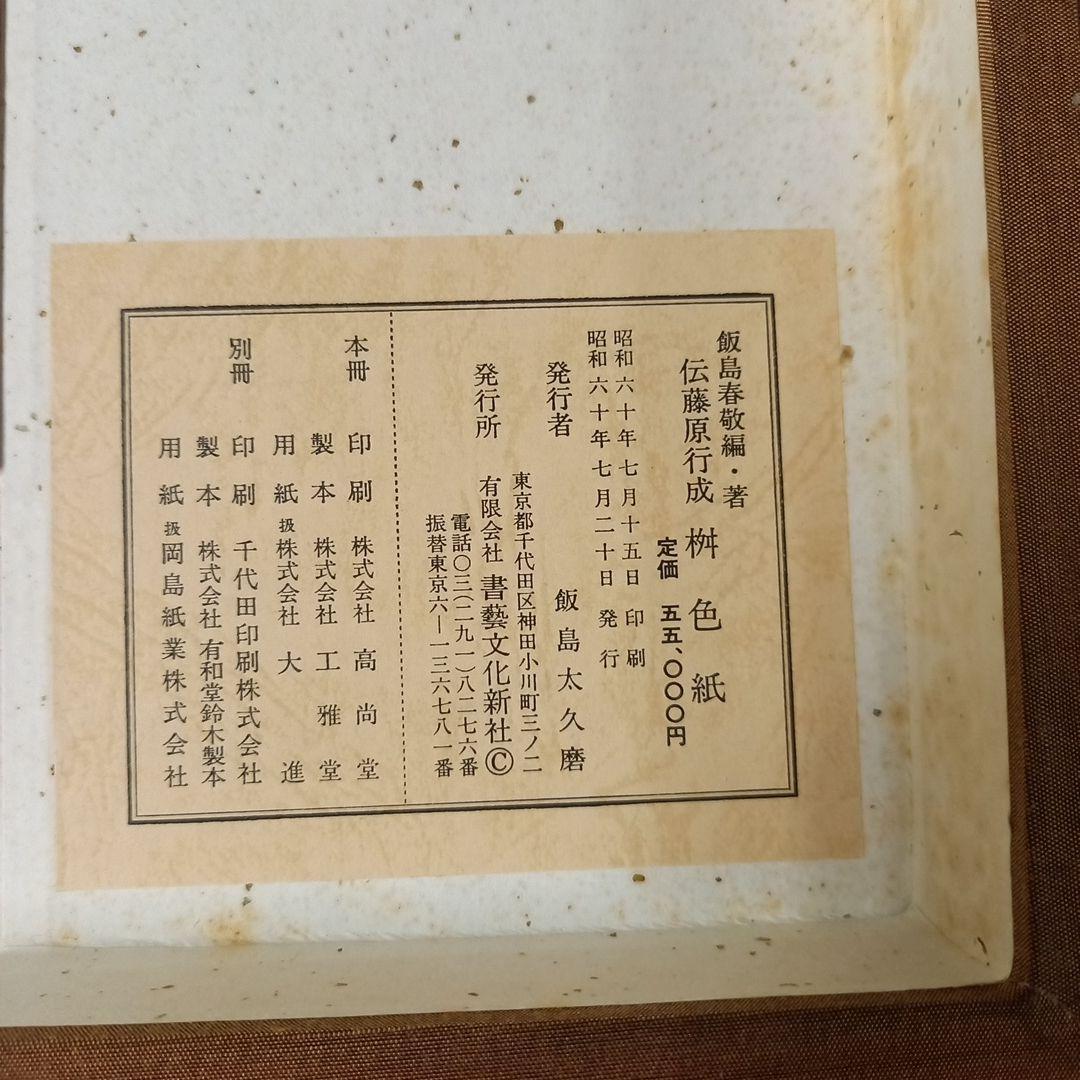 飯島春敬編・著
伝藤原行成 桝色紙
定価 五五、〇〇〇円
昭和六十年七月十五日 印刷
昭和六十年七月二十日 発行
発行者 飯島太久磨
東京都千代田区神田小川町三ノ二
発行所 有限会社 書藝文化新社©
電話〇三(二九一)八二七六番
振替東京六―一三六七八一番
本冊 印刷 株式会社 高尚堂
製本 株式会社 工雅堂
用紙扱 株式会社 大進
別冊 印刷 千代田印刷株式会社
製本 株式会社 有和堂鈴木製本
用紙扱 岡島紙業株式会社